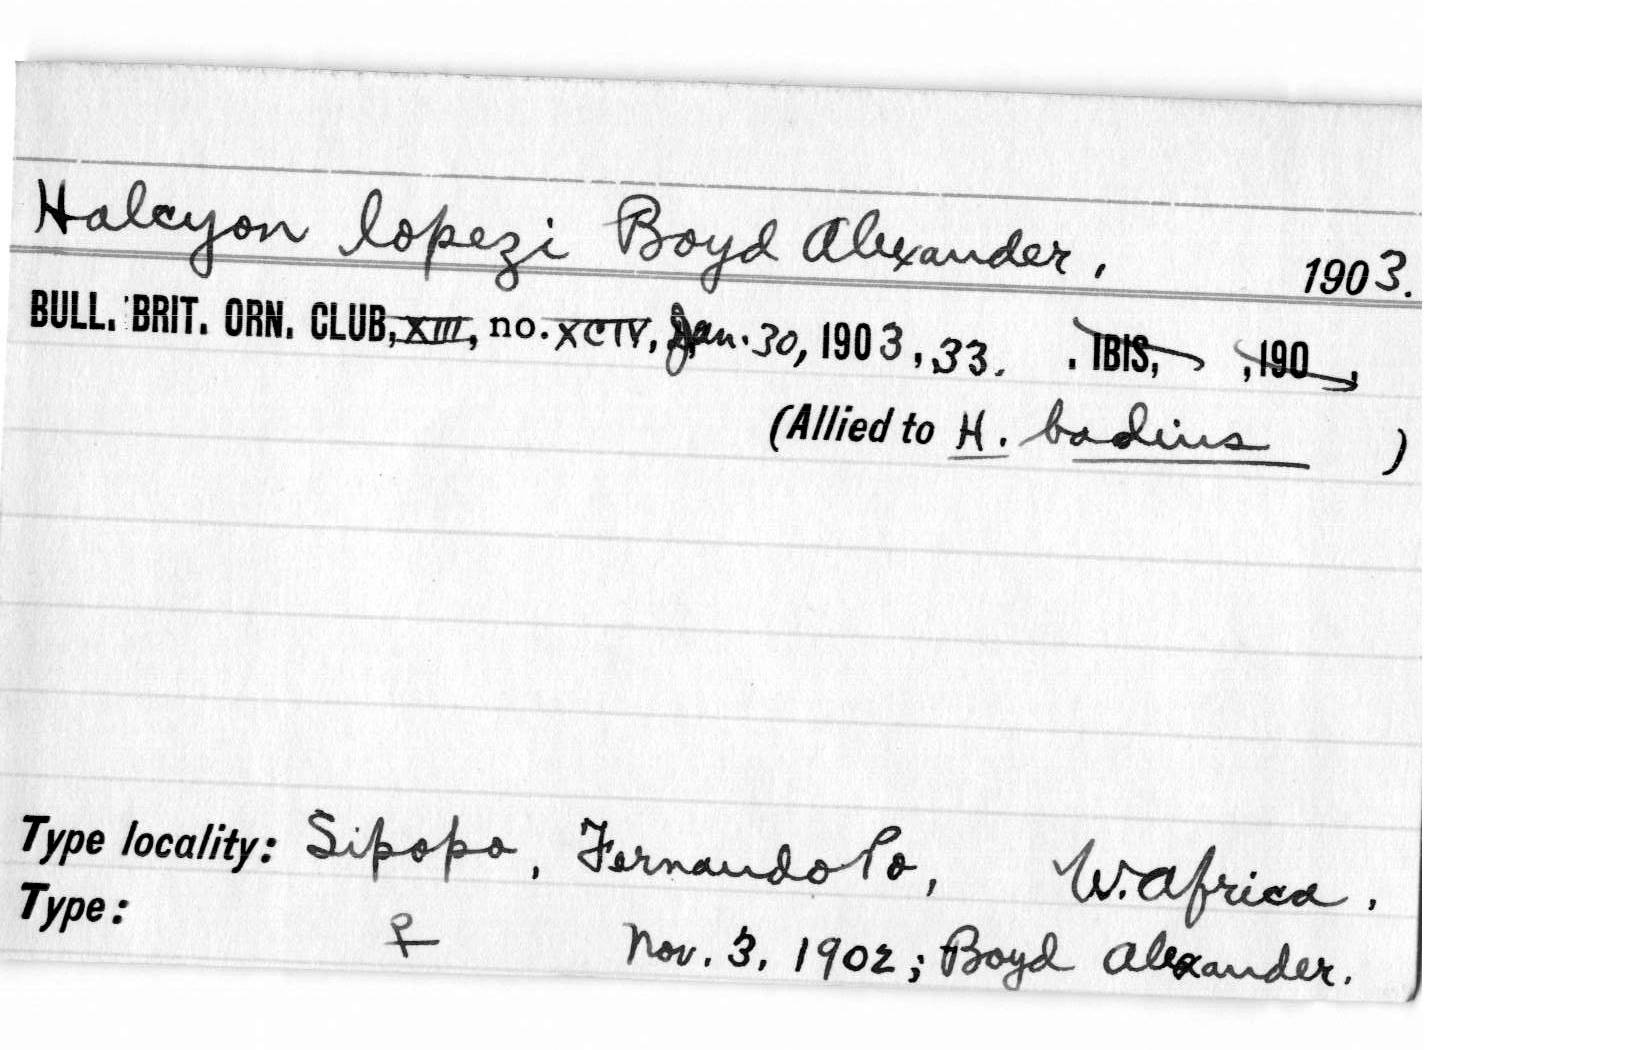 Halcyon lopezi Boyd Alexander, 1903.
BULL. BRIT. ORN. CLUB, XIII, no. XCIV, Jan. 30, 1903, 33. . IBIS, , 190 ,
(Allied to H. badius )
Type locality: Sipopo, Fernando Po, W. Africa.
Type: ♀ Nov. 3, 1902; Boyd Alexander.